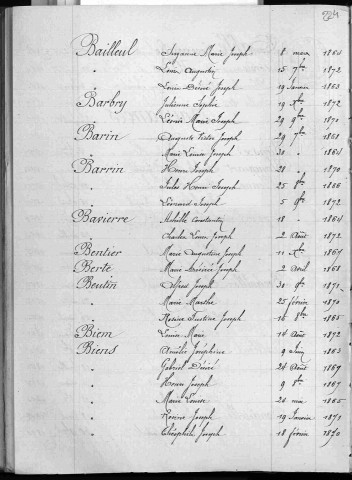 224
Bailleul Suzanne Marie Joseph 8 mars 1864
" Louis Augustin 15 7bre 1872
" Louis Désiré Joseph 19 Janvier 1863
Barbry Julienne Sophie 19 Xbre 1872
" Léonie Marie Joseph 29 9bre 1870
Barin Auguste Victor Joseph 29 7bre 1868
" Marie Louise Joseph 30 " 1864
Barrin Henri Joseph 28 " 1870
" Jules Henri Joseph 25 8bre 1866
" Léonard Joseph 5 9bre 1872
Bavierre Achille Constantin 18 " 1864
" Charles Louis Joseph 2 Août 1872
Bentier Marie Augustine Joseph 11 Xbre 1861
Berte Marie Désirée Joseph 2 Avril 1868
Beutin Alfred Joseph 30 9bre 1871
" Marie Marthe 25 février 1870
" Rosine Justine Joseph 16 8bre 1865
Biem Louise Marie 14 Août 1872
Biens Amélie Joséphine 9 Juin 1863
" Gabriel Désiré 24 Août 1867
" Henri Joseph 9 8bre 1867
" Marie Louise 24 mai 1865
" Joseph 19 Janvier 1871
" Théophile Joseph 18 février 1870